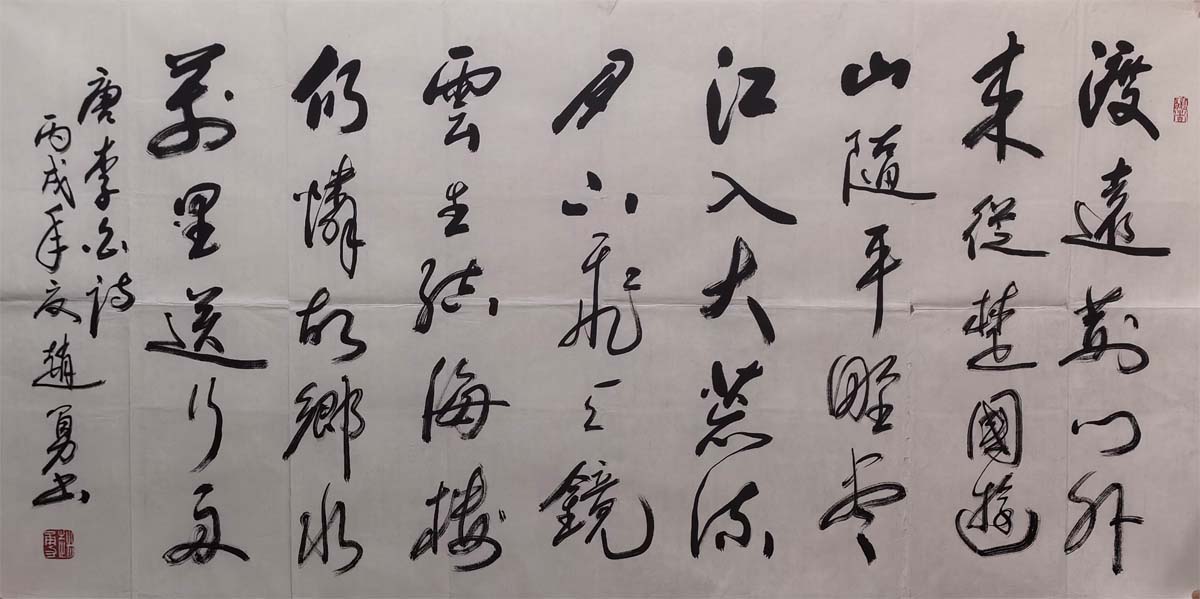 渡遠荊門外
来從楚國遊
山隨平野盡
江入大荒流
月下飛天鏡
雲生結海樓
仍憐故鄉水
萬里送行舟
唐李白詩
丙戌年夏趙勇書